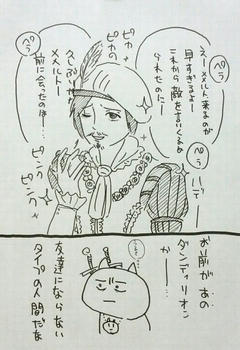 ペラ
ペラ
えーメルト、来るのが
早すぎるよー
これから敵を言いくるめ
られたのにー
ピカ
ピカの
ペラ
久しぶり
メルトー
前に会ったのは!…
ピンク
ピンク
お前があの
ダンディリオン
かー……
友達にならない
タイプの人間だな